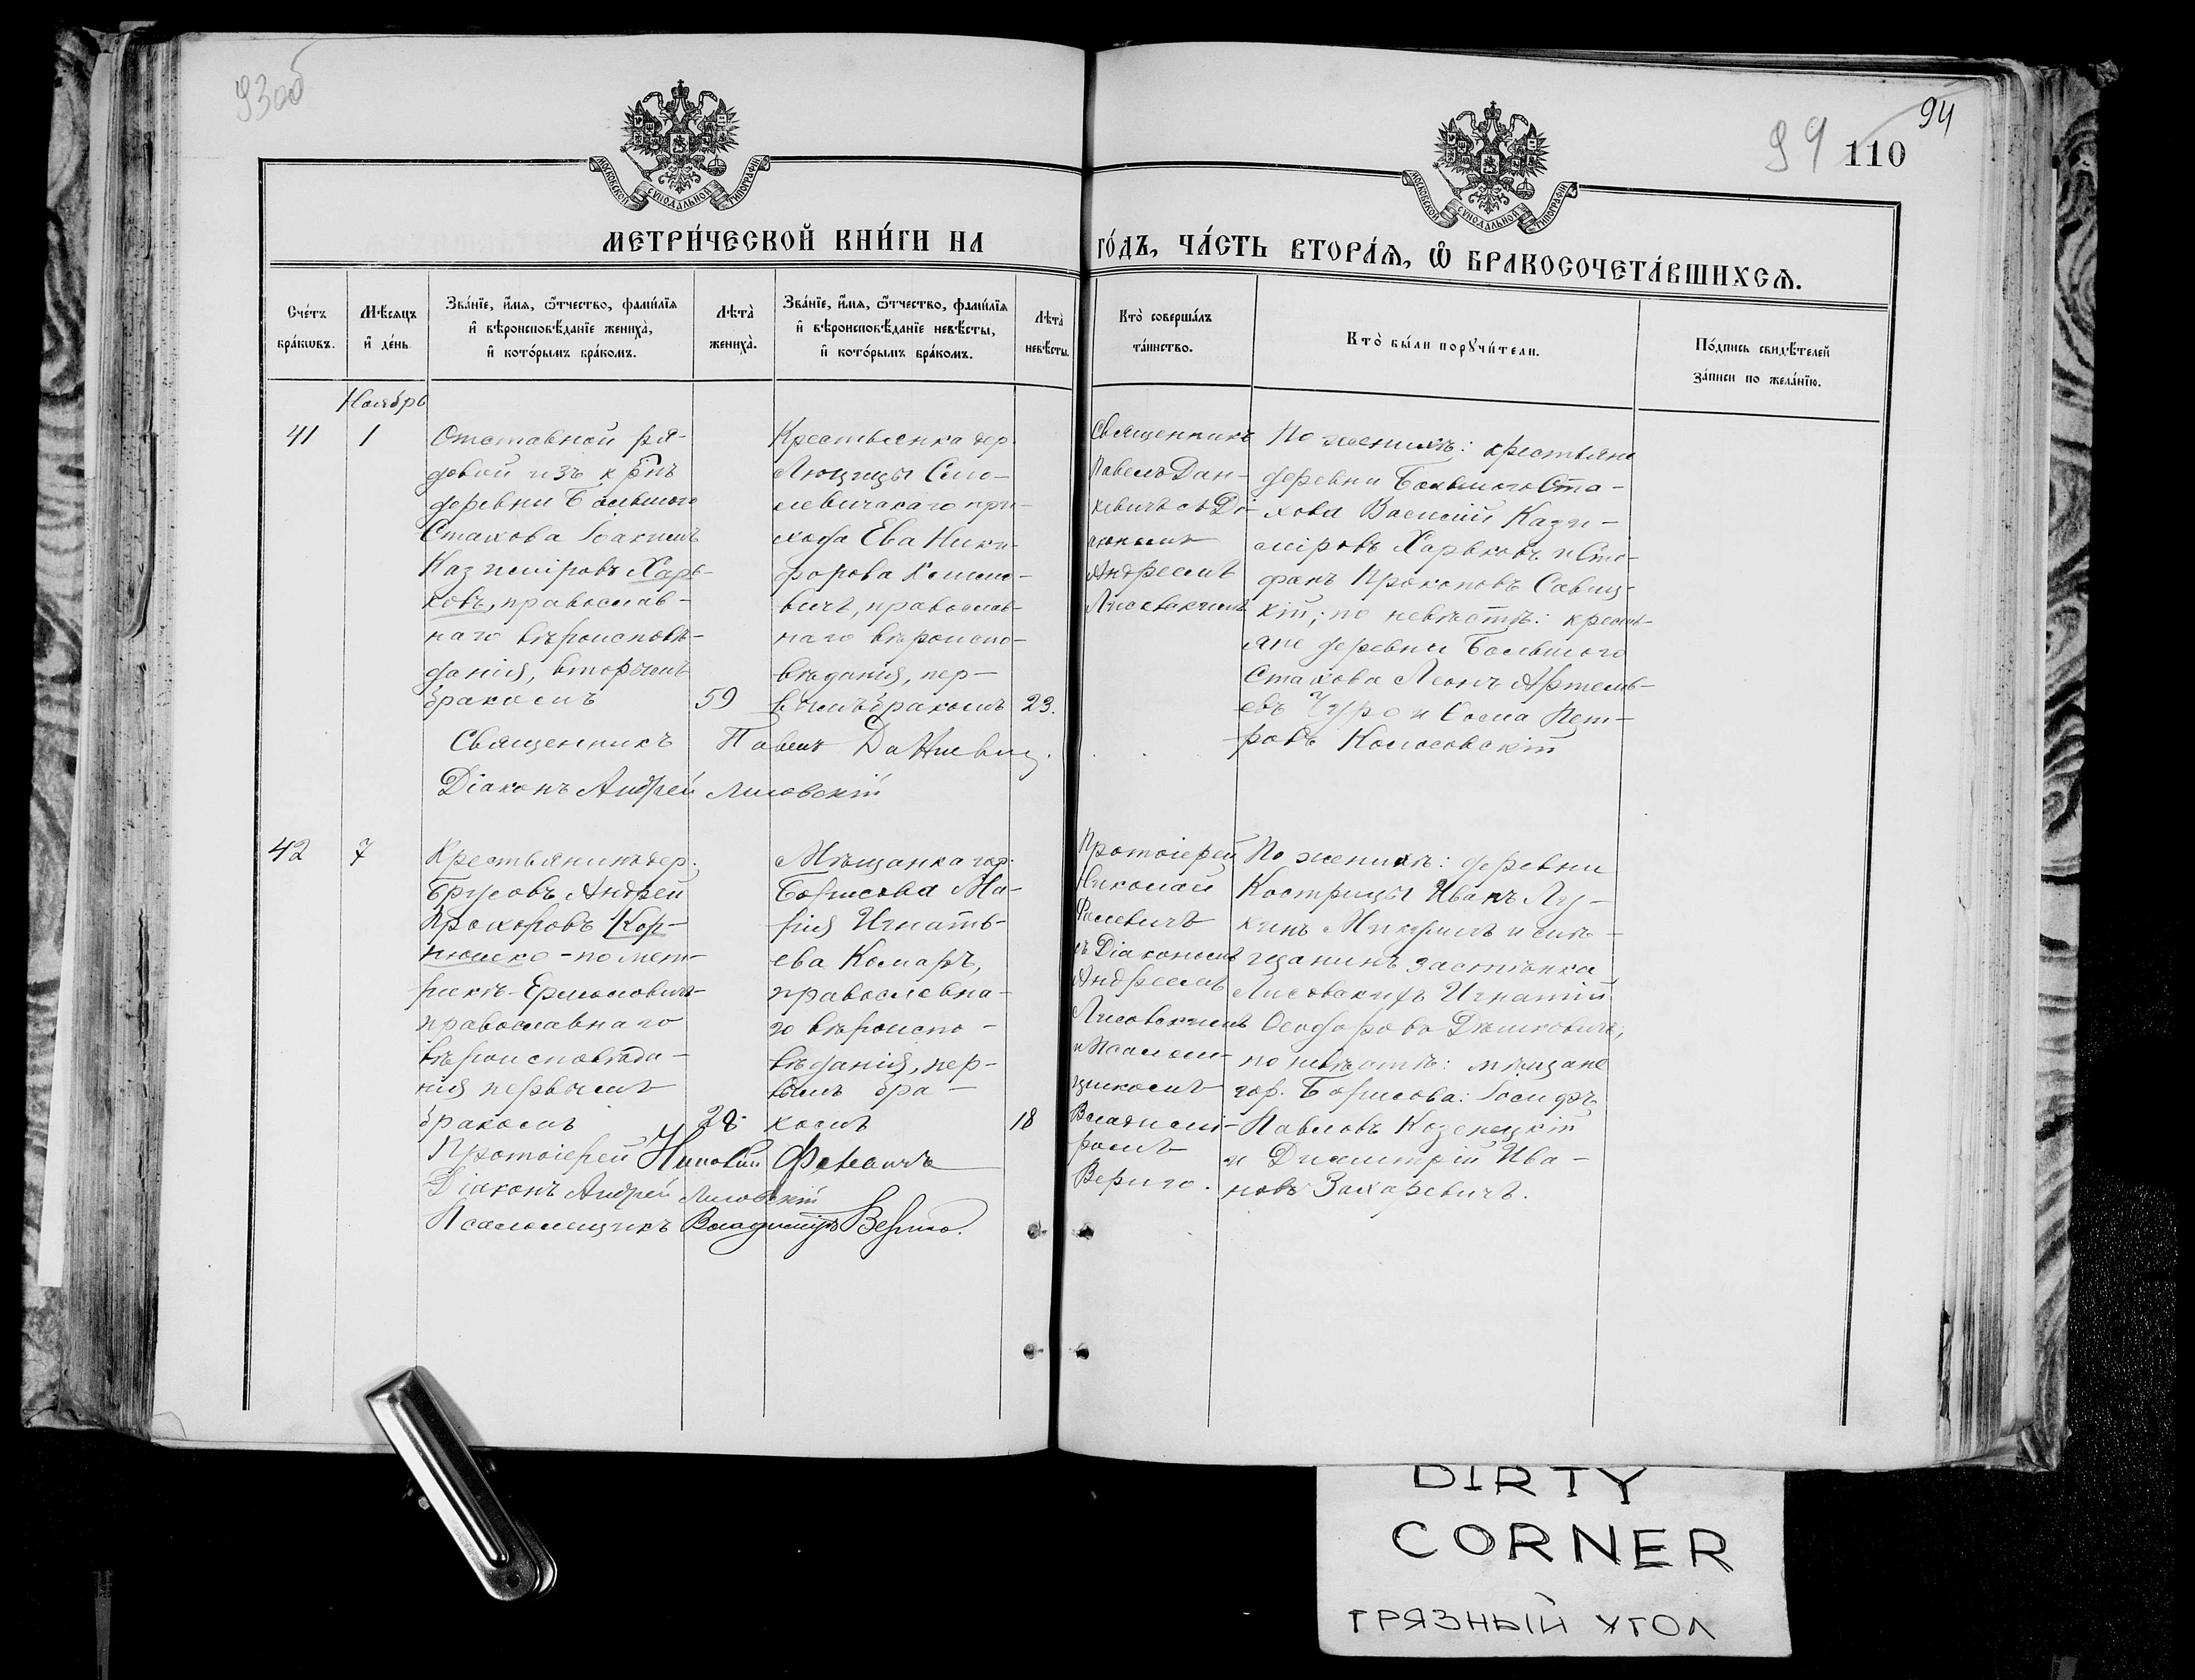 93об
94
99 110
МОСКОВСКОЙ СѴНОДАЛЬНОЙ ТИПОГРАФІИ
МОСКОВСКОЙ СѴНОДАЛЬНОЙ ТИПОГРАФІИ
МЕТРИ́ЧЕСКОЙ КНИ́ГИ НА ГО́ДЪ, ЧА́СТЬ ВТОРА́Ѧ, Ѽ БРАКОСОЧЕТА́ВШИХСѦ.
Сче́тъ
бра́кѡвъ.
Мѣ́сяцъ
и҆ де́нь.
Зва́нїе, и҆́мя, ѻ҆́тчество, фами́лїя
и҆ вѣроисповѣ́данїе жениха̀,
и҆ кото́рымъ бра́комъ.
Лѣта̀
жениха̀.
Зва́нїе, и҆́мя, ѻ҆́тчество, фами́лїя
и҆ вѣроисповѣ́данїе невѣ́сты,
и҆ кото́рымъ бра́комъ.
Лѣта̀
невѣ́сты.
Кто̀ соверша́лъ
та́инство.
Кто̀ бы́ли порꙋчи́тели.
По́дпись свидѣ́телей
за́писи по жела́нїю.
Ноябрь
41
1
Отставной ря-
довой изъ крнъ
деревни Большого
Стахова Іоакимъ
Казиміровъ Харь-
ковъ, православ-
наго вѣроисповѣ-
данія, вторымъ
бракомъ
59
Крестьянка дер.
Лющицы Смо-
левичскаго при-
хода Ева Ники-
форова
вичъ, православ-
наго вѣроиспо-
вѣданія, пер-
вымъ бракомъ
23.
Священникъ
Павелъ Дан-
кевичъ съ Ді-
акономъ
Андреемъ
Лисовскимъ
По женихѣ: крестьяне
деревни Большого Ста-
хова Василій Кази-
міровъ Харьковъ и Сте-
фанъ Прокоповъ Савиц-
кій; по невѣстѣ: кресть-
яне деревни Большого
Стахова Леонъ Артемь-
евъ Чуро и Ѳома Пет-
ровъ Колосовскій
Священникъ Павелъ
Діаконъ Андрей Лисовскій
42
7
Крестьянинъ дер.
Брусовъ Андрей
Прохоровъ Кор-
нюшко - по мет-
рикѣ - Ермоловичъ
православнаго
вѣроисповѣда-
нія первымъ
бракомъ
28.
Мѣщанка гор.
Борисова Ма-
рія Игнать-
ева Комаръ,
православна-
го вѣроиспо-
вѣданія, пер-
вымъ бра-
комъ
18
Протоіерей
Николай
Фалевичъ
съ Діакономъ
Андреемъ
Лисовскимъ
и Псаломщ-
щикомъ
Владимі-
ромъ
Вериго.
По женихѣ: деревни
Кострицы Иванъ Лу-
кинъ и мѣ-
щанинъ застѣнка
Лисовскихъ Игнатій
Ѳеодоровъ Дешковичъ;
по невѣстѣ: мѣщане
гор. Борисова: Іосифъ
Павловъ Козенецкій
и Димитрій Ива-
новъ Захаревичъ.
Протоіерей Николай Фалевичъ
Діаконъ Андрей Лисовскій
Псаломщикъ Владиміръ Вериго.
DIRTY
CORNER
ГРЯЗНЫЙ УГОЛ